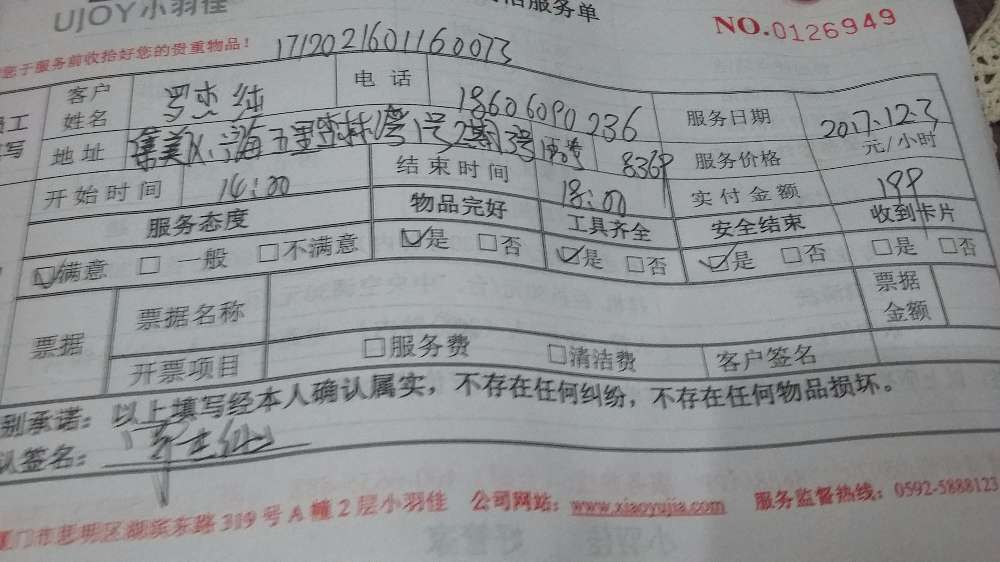 UJOY小羽佳
服务单
NO.0126949
您于服务前收拾好您的贵重物品！ 1712021601160073
客户姓名 罗杰纯 电话 18606090236 服务日期 2017.12.3
地址 集美区 海 五里 林 1号2梯 3号 836 服务价格 元/小时
开始时间 14:00 结束时间 18:00 实付金额 199
服务态度 物品完好 工具齐全 安全结束 收到卡片
☑满意 □一般 □不满意 ☑是 □否 ☑是 □否 ☑是 □否 □是 □否
票据 票据名称 票据金额
开票项目 □服务费 □清洁费 客户签名
别承诺：以上填写经本人确认属实，不存在任何纠纷，不存在任何物品损坏。
认签名：
厦门市思明区湖滨东路319号A幢2层小羽佳 公司网站：www.xiaoyujia.com 服务监督热线：0592-5888123